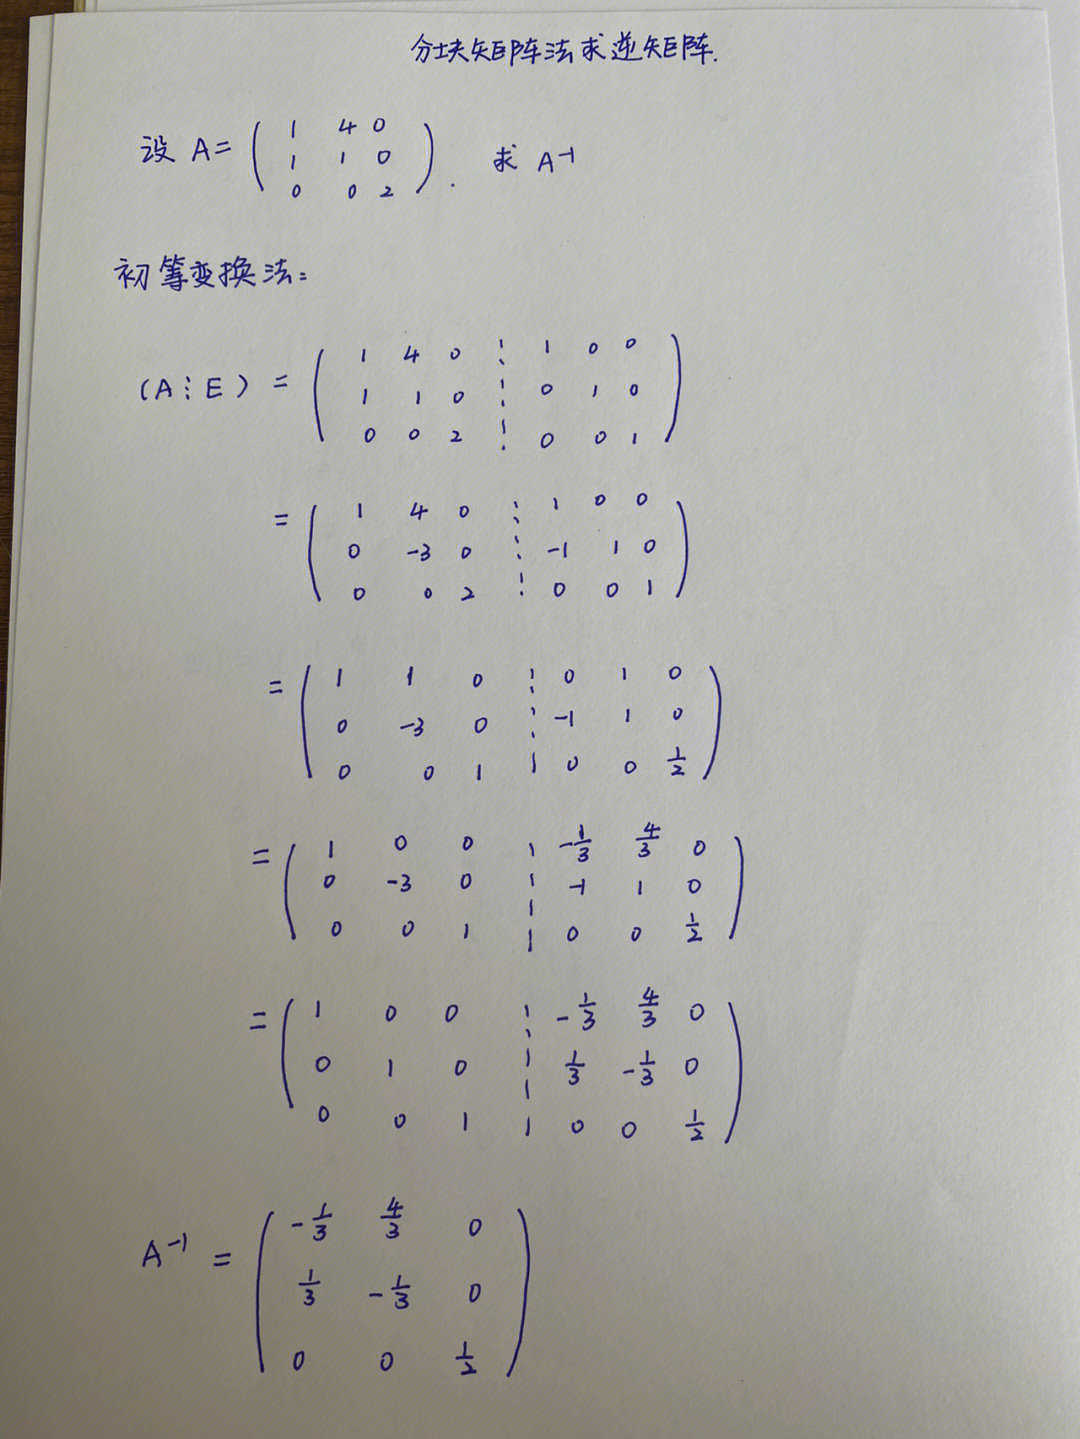 分块矩阵法求逆矩阵.
设 A= ( 1 4 0
1 1 0
0 0 2 ) . 求 A⁻¹
初等变换法:
(A⋮E) = ( 1 4 0 ⋮ 1 0 0
1 1 0 ⋮ 0 1 0
0 0 2 ⋮ 0 0 1 )
= ( 1 4 0 ⋮ 1 0 0
0 -3 0 ⋮ -1 1 0
0 0 2 ⋮ 0 0 1 )
= ( 1 1 0 ⋮ 0 1 0
0 -3 0 ⋮ -1 1 0
0 0 1 ⋮ 0 0 1/2 )
= ( 1 0 0 ⋮ -1/3 4/3 0
0 -3 0 ⋮ -1 1 0
0 0 1 ⋮ 0 0 1/2 )
= ( 1 0 0 ⋮ -1/3 4/3 0
0 1 0 ⋮ 1/3 -1/3 0
0 0 1 ⋮ 0 0 1/2 )
A⁻¹ = ( -1/3 4/3 0
1/3 -1/3 0
0 0 1/2 )